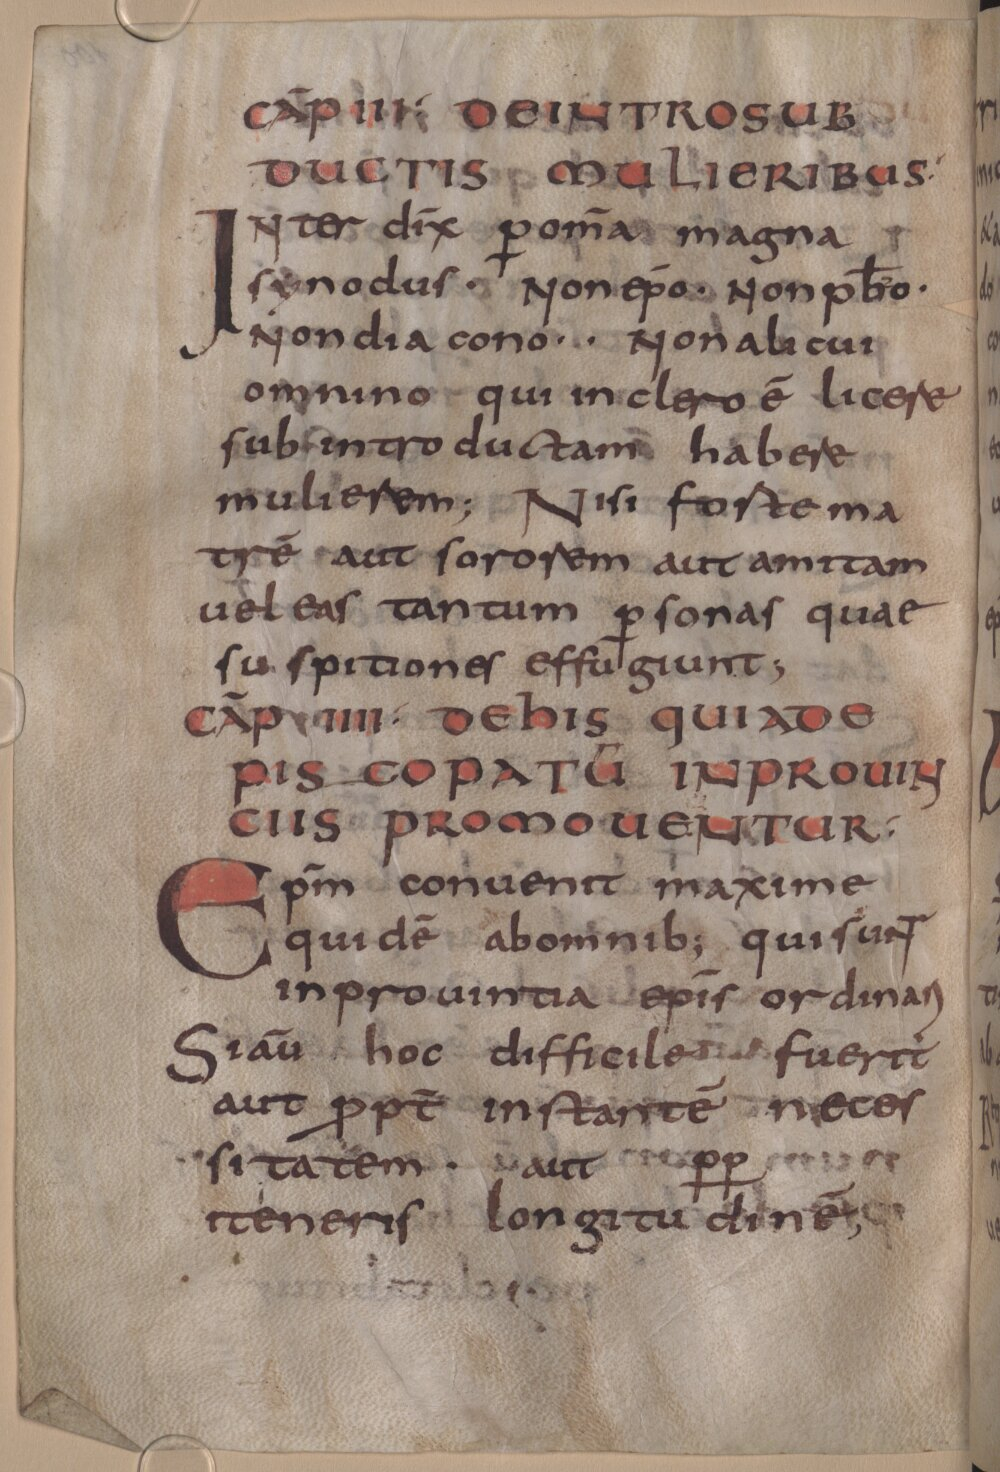 CĀP III· DEINTROSUB
DUCTIS MULIERIBUS·
INter dix̄ ꝑom̄a magna
synodus· Non ep̄o· Non pb̄ro·
Nondiacono·· Nonalicui
omnino qui inclero ē licere
subintroductam habere
mulierem; Nisi forte ma
trē aut sororem aut amitam
uel eas tantum ꝑsonas quae
suspitiones effugiunt;
CĀP IIII· DEhIS QUIADE
PISCOPATŪ INPROUIN
CIIS PROMOUENTUR·
Ep̄m conuenit maxime
quidē abomnib; qui sunt
inprouintia ep̄is ordinari
Siaū hoc difficile fuerit
aut ꝓpt̄ instantē neces
sitatem· aut ꝓp
iteneris longitudinē;